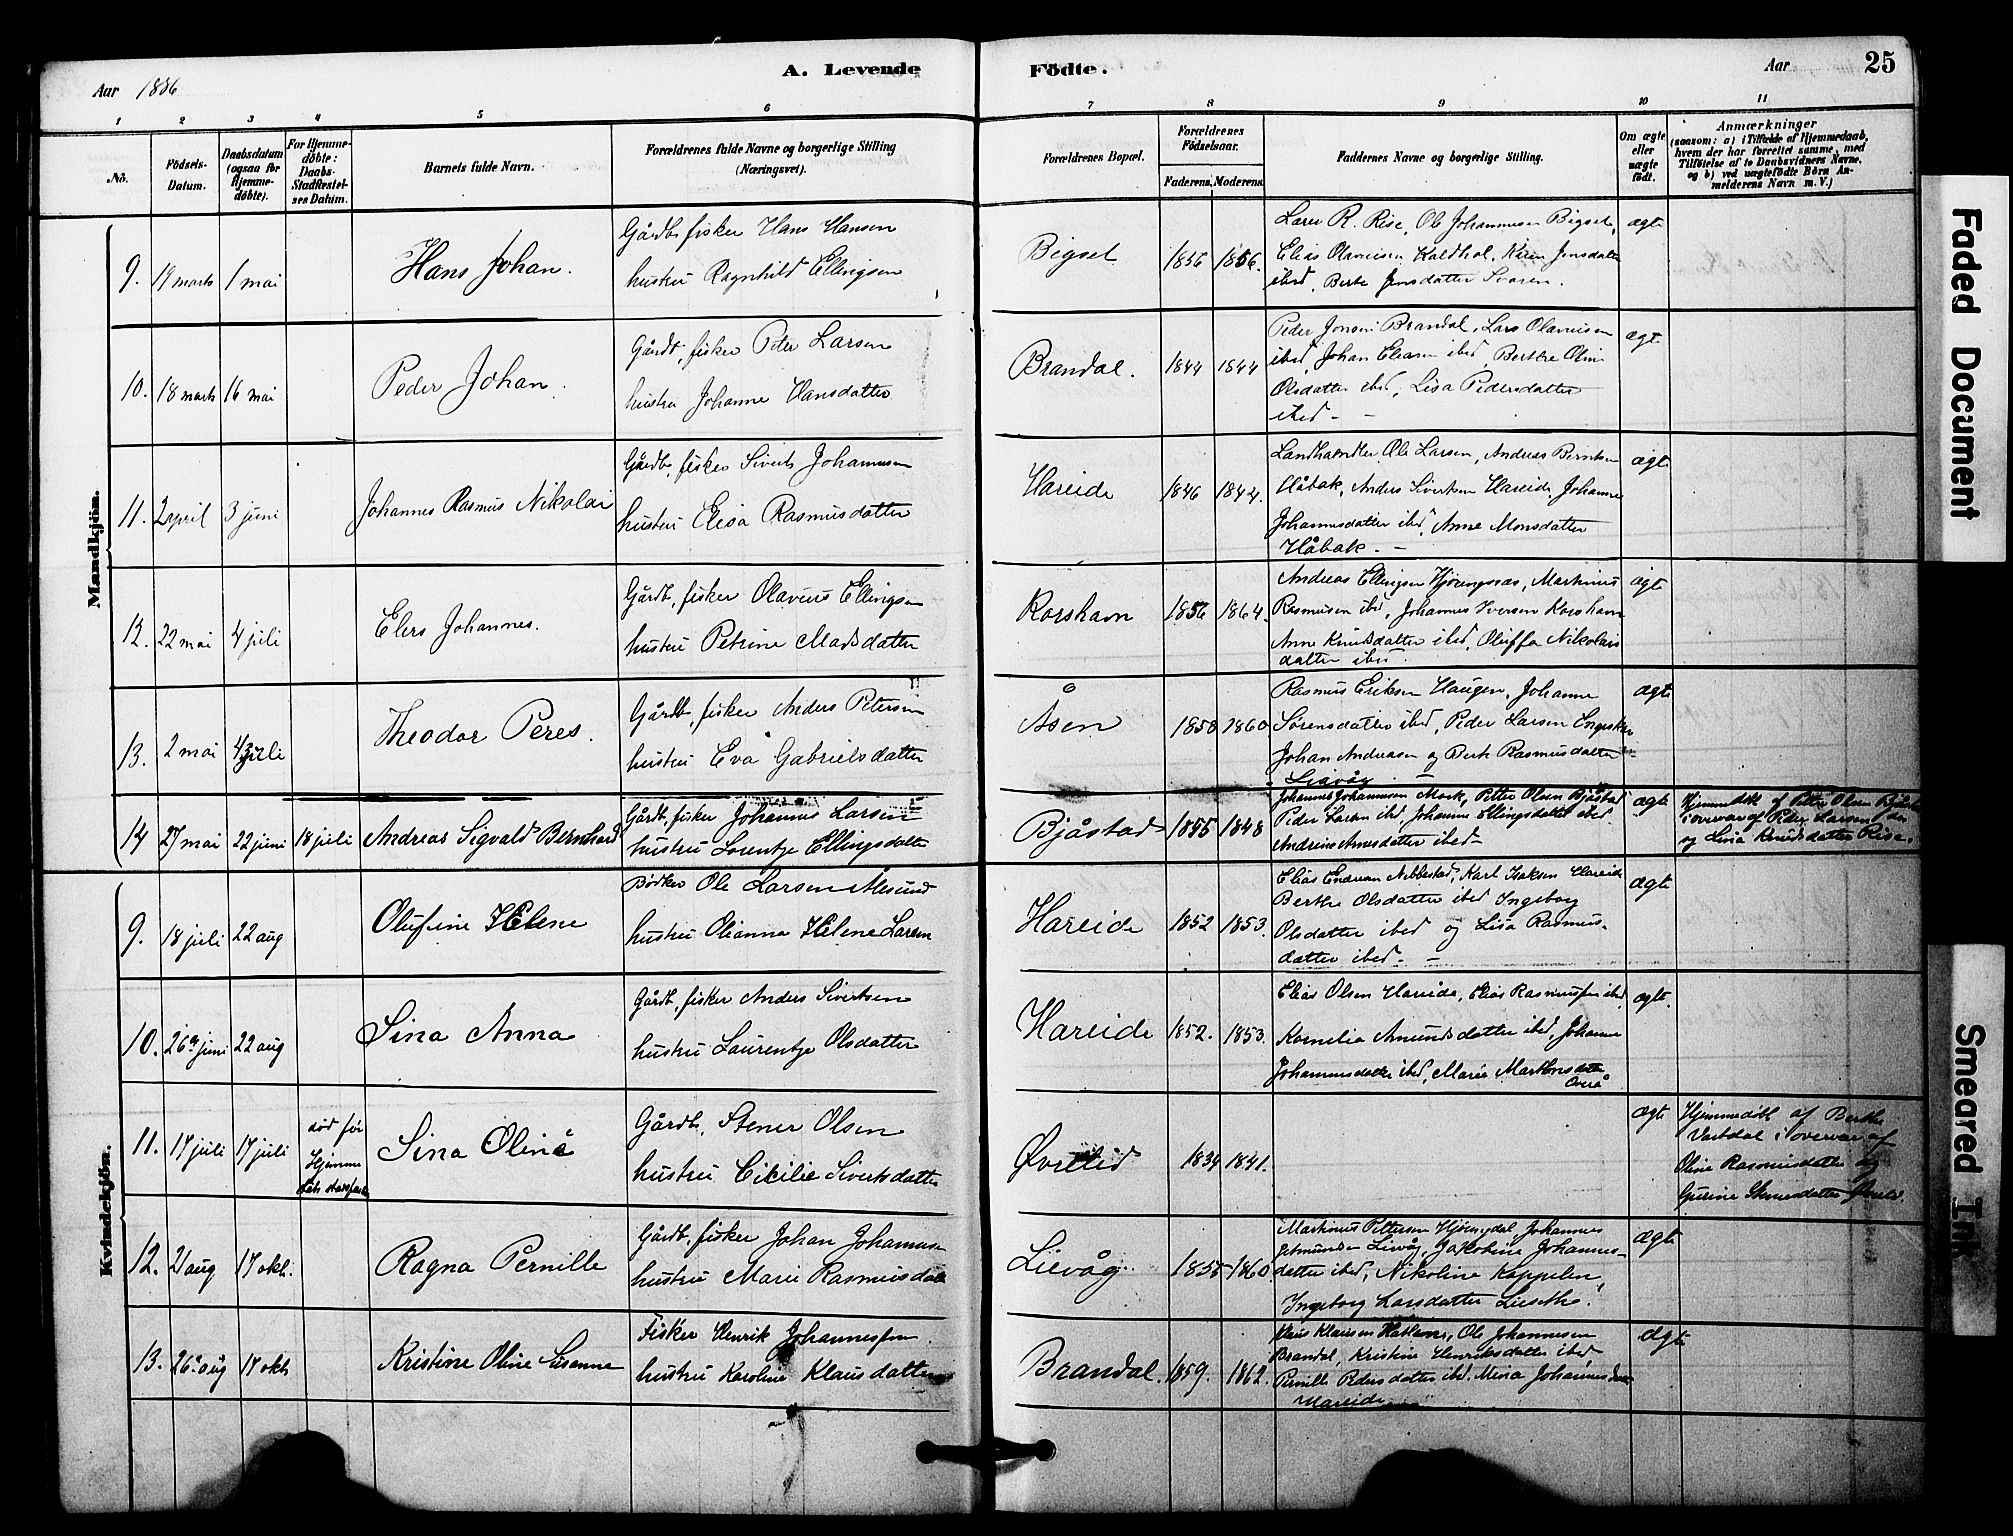 Aar 1886
A. Levende
Födte.
Aar
25
1 2 3 4 5 6 7 8 9 10 11
No.
Födsels-
Datum.
Daabsdatum
(ogsaa for
Hjemme-
döbte).
For Hjemme-
döbte:
Daabs-
Stadfæstel-
ses Datum.
Barnets fulde Navn.
Forældrenes fulde Navne og borgerlige Stilling
(Næringsvei).
Forældrenes Bopæl.
Forældrenes
Födselsaar.
Faderens. Moderens.
Faddernes Navne og borgerlige Stilling.
Om ægte
eller
uægte
födt.
Anmærkninger
(saasom: a) i Tilfælde af Hjemmedaab,
hvem der har forrettet samme, med
Tilföielse af to Daabsvidners Navne,
og b) ved uægtefödte Börn An-
melderens Navn m. V.)
Mandkjön.
9. 19 marts 1 mai Hans Johan.
Gårdb. fisker Hans Hansen
hustru Ragnhild Ellingsen
Bigset 1856 1856.
Lars R. Rise, Ole Johannesen Bigset,
Elias Olausen Kaldhol, Karen Jensdatter
ibid, Berte Jensdatter
ægte
10. 18 marts 16 mai Peder Johan.
Gårdb. fisker Peter Larsen
hustru Johanne Hansdatter
Brandal. 1844 1844
Peder Jonsen Brandal, Lars Olausen
ibid, Johan Eliasen ibid, Berthe Oline
Olsdatter ibid, Lisa Pedersdatter
ibid
ægte
11. 2 april 3 juni Johannes Rasmus Nikolai
Gårdb. fisker Sivert Johannesen
hustru Elisa Rasmusdatter
Hareide 1846 1844.
Landhandler Ole Larsen, Andreas Berntsen
Håbak, Anders Sivertsen Hareide, Johanne
Johannesdatter ibid, Anne Monsdatter
Håbak.
ægte
12. 22 mai 4 juli Elers Johannes.
Gårdb. fisker Olavus Ellingsen
hustru Petrine Madsdatter
Korshavn 1856 1864.
Andreas Ellingsen Hjørungnæs, Martinus
Rasmusen ibid, Johannes Iversen Korshavn
Anne Knudsdatter ibid, Oluffa Nikolais
datter ibid.
ægte
13. 2 mai 4 juli Theodor Peres.
Gårdb. fisker Anders Petersen
hustru Eva Gabrielsdatter
Åsen 1858 1860
Rasmus Eriksen Haugen, Johanne
Sørensdatter ibid, Peder Larsen
Johan Andreasen og Berte Rasmusdatter
Liavåg
ægte
14 27 mai 22 juni 18 juli Andreas Sigvald Bernhard
Gårdb. fisker Johannes Larsen
hustru Lorentze Ellingsdatter
Bjåstad 1855 1848
Johannes Johannesen Mork, Petter Olsen Bjåstad
Peder Larsen ibid, Johanne Ellingsdatter ibid
Andrine Arnesdatter ibid
ægte
Hjemmedøbt af Petter Olsen Bjåstad
i overvær af Peder Larsen
og Lina Knudsdatter Rise.
Kvindekjön.
9. 18 juli 22 aug Olufine Helene
Bødker Ole Larsen Ålesund
hustru Olianna Helene Larsen
Hareide 1852 1853.
Elias Endresen Nibbestad, Karl Isaksen Hareide
Berthe Olsdatter ibid Ingeborg
Olsdatter ibid og Lisa Rasmus-
datter ibid
ægte
10. 26de juni 22 aug Sina Anna
Gårdb. fisker Anders Sivertsen
hustru Laurentze Olsdatter
Hareide 1852. 1853.
Elias Olsen Hareide, Elias Rasmussen ibid
Kornelia Amundsdatter ibid, Johanne
Johannesdatter ibid, Marie Martinusdatter
Overå
ægte.
11. 17 juli 17 juli død før
Hjemme
dåb stadfæst
Sina Olina
Gårdb. Stener Olsen
hustru Cicilie Sivertsdatter
Øvrelid 1834 1841.
ægte
Hjemmedøbt af Berthe
Vartdal i overvær af
Oline Rasmusdatter og
Gurine Stenersdatter Øvrelid
12. 21 aug 17 okt. Ragna Pernille
Gårdb. fisker Johan Johannesen
hustru Marie Rasmusdatter
Lievåg 1858 1860.
Martinus Pettersen Hjørungdal, Johannes
Lievåg, Jakobine Johannes-
datter ibid, Nikoline Kappelen,
Ingeborg Larsdatter Lieseth.
ægte
13. 26de aug 17 okt Kristine Oline Susanne
Fisker Henrik Johannessen
hustru Karoline Klausdatter
Brandal. 1859. 1862.
Klaus Klausen Hatlane, Ole Johannesen
Brandal, Kristine Henriksdatter ibid
Pernille Pedersdatter ibid, Mina Johannesdatter
Hareide
ægte
Faded Document
Smeared Ink